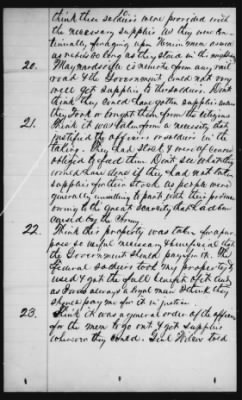 think these soldiers were provided with
the necessary supplies as they were con-
tinually foraging upon Union men & sece
as rebels so long as they staid in the neighbor
20. Maynardsville is remote from any rail
road & the Government could not very
well get supplies to the soldiers. Dont
think they could have gotten supplies unless
they took or bought them from the citizens
21. Think it was taken from a necessity that
justified the officers or soldiers in the
taking. They had stock & were of course
obliged to feed them. Dont see what they
would have done if they had not taken
supplies for their stock as people were
generally unwilling to part with their forage
owing to the great scarcity that had been
caused by the Army.
22. Think this property was taken for a pur
pose so useful necessary & beneficial that
the Government should pay for it. The
Federal soldiers took my property &
used & got the full benefit of it and
as I was always a loyal man I think they
should pay me for it in justice
23. Think it was a general order of the officers
for the men to go out & get supplies
wherever they could. Genl